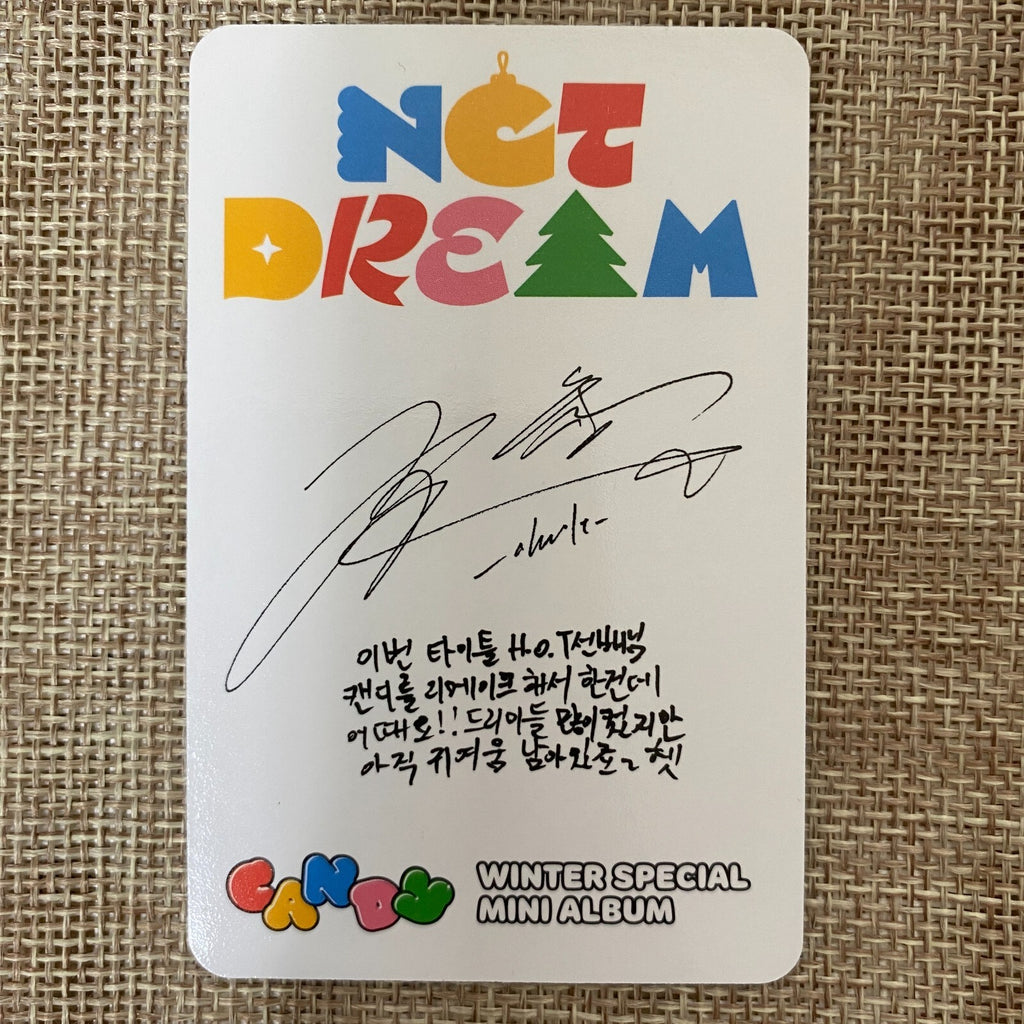 NCT
DREAM
이번 타이틀 H.O.T선배님
캔디를 리메이크 해서 한건데
어때요!! 드리머들 많이 컸지만
아직 귀여움 남아있죠~ 헷
CANDY
WINTER SPECIAL
MINI ALBUM